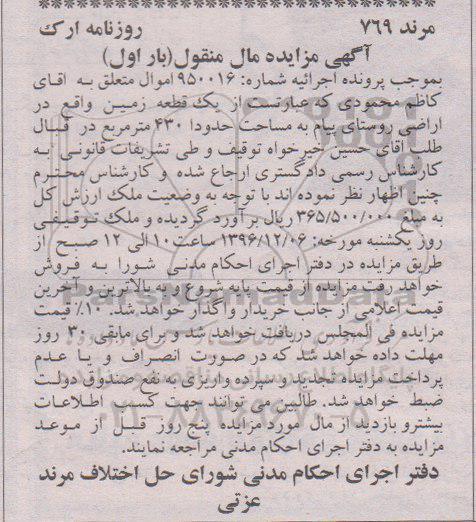 مرند ۷۶۹ روزنامه ارک
آگهی مزایده مال منقول(بار اول)
بموجب پرونده اجرائیه شماره: ۹۵۰۰۱۶ اموال متعلق به اقای
کاظم محمودی که عبارتست از یک قطعه زمین واقع در
اراضی روستای پیام به مساحت حدودا ۴۳۰ مترمربع در قبال
طلب اقای حسین خیرخواه توقیف و طی تشریفات قانونی به
کارشناس رسمی دادگستری ارجاع شده و کارشناس محترم
چنین اظهار نظر نموده اند با توجه به وضعیت ملک ارزش کل
به مبلغ ۳۶۵/۵۰۰/۰۰۰ ریال برآورد گردیده و ملک توقیفی
روز یکشنبه مورخه: ۱۳۹۶/۱۲/۰۶ ساعت۱۰ الی ۱۲ صبح از
طریق مزایده در دفتر اجرای احکام مدنی شورا به فروش
خواهد رفت مزایده از قیمت پایه شروع و به بالاترین و آخرین
قیمت اعلامی از جانب خریدار واگذار خواهد شد. ۱۰٪ قیمت
مزایده فی المجلس دریافت خواهد شد و برای مابقی ۳۰ روز
مهلت داده خواهد شد که در صورت انصراف و یا عدم
پرداخت مزایده تجدید و سپرده واریزی به نفع صندوق دولت
ضبط خواهد شد. طالبین می توانند جهت کسب اطلاعات
بیشترو بازدید از مال مورد مزایده پنج روز قبل از موعد
مزایده به دفتر اجرای احکام مدنی مراجعه نمایند.
دفتر اجرای احکام مدنی شورای حل اختلاف مرند
عزتی
ParsNamadData
۰۲۱-۸۸۳۴۹۶۷۰-۵